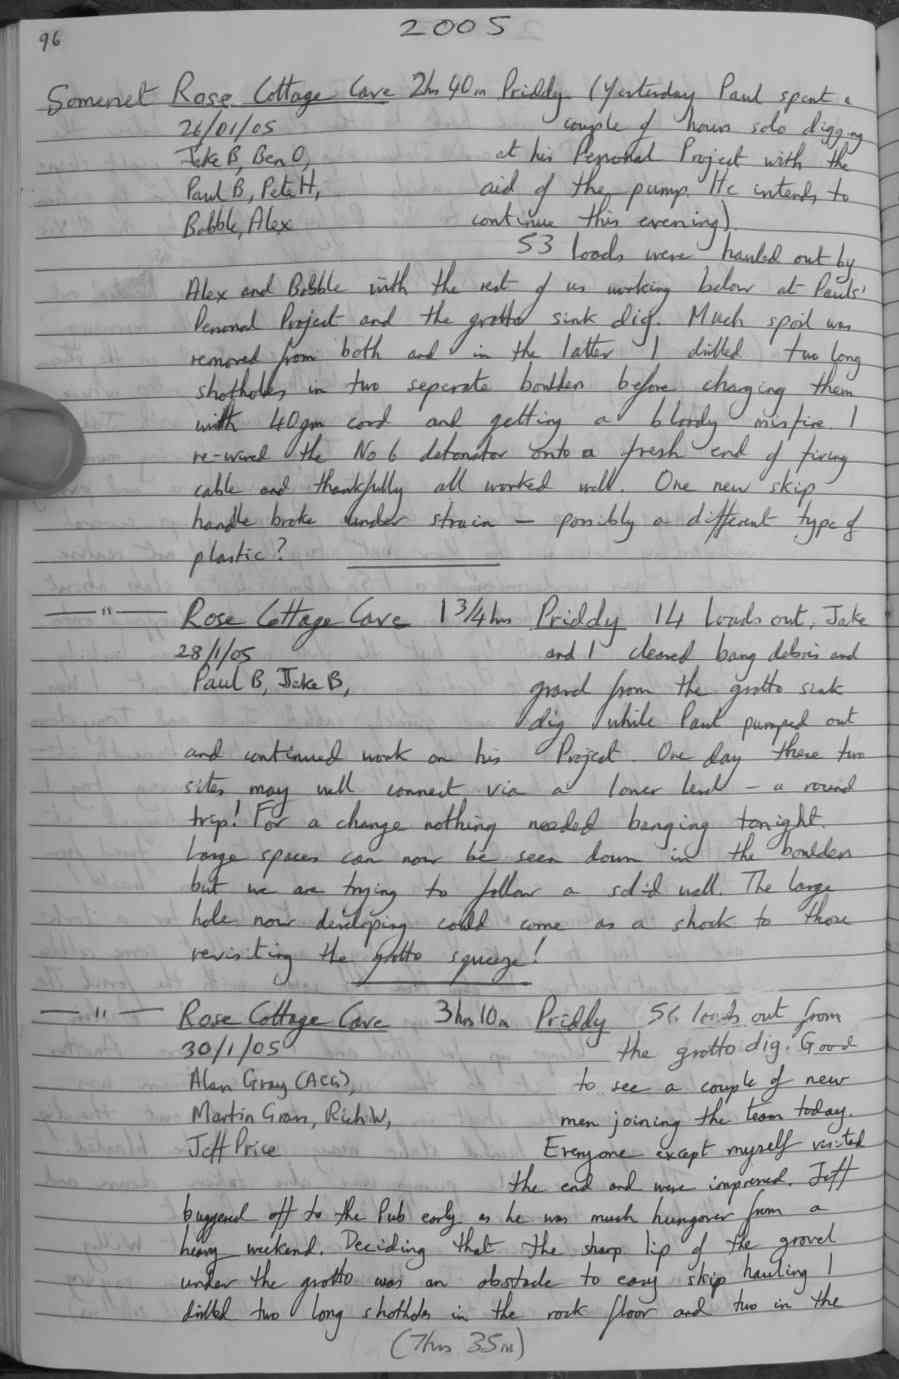 96
2005
Somerset Rose Cottage Cave 2hrs 40m Priddy (Yesterday Paul spent a
26/01/05 couple of hours solo digging
Jake B, Ben O, at his Personal Project with the
Paul B, Pete H, aid of the pump. He intends to
Bobble, Alex continue this evening)
53 loads were hauled out by
Alex and Bobble with the rest of us working below at Pauls'
Personal Project and the grotto sink dig. Much spoil was
removed from both and in the latter I drilled two long
shotholes in two seperate boulders before charging them
with 40gm cord and getting a bloody misfire. I
re-wired the No 6 detonator onto a fresh end of firing
cable and thankfully all worked well. One new skip
handle broke under strain – possibly a different type of
plastic?
— " — Rose Cottage Cave 1 3/4 hrs Priddy 14 loads out, Jake
28/1/05 and I cleared bang debris and
Paul B, Jake B, gravel from the grotto sink
dig while Paul pumped out
and continued work on his Project. One day these two
sites may well connect via a lower level – a round
trip! For a change nothing needed banging tonight.
Large spaces can now be seen down in the boulders
but we are trying to follow a solid wall. The large
hole now developing could come as a shock to those
revisiting the grotto squeeze!
— " — Rose Cottage Cave 3hrs 10m Priddy 56 loads out from
30/1/05 the grotto dig. Good
Alan Gray (ACG), to see a couple of new
Martin Grass, Rich W, men joining the team today.
Jeff Price Everyone except myself visited
the end and were impressed. Jeff
buggered off to the Pub early as he was much hungover from a
heavy weekend. Deciding that the sharp lip of the gravel
under the grotto was an obstacle to easy skip hauling I
drilled two long shotholes in the rock floor and two in the
(7hrs 35m)